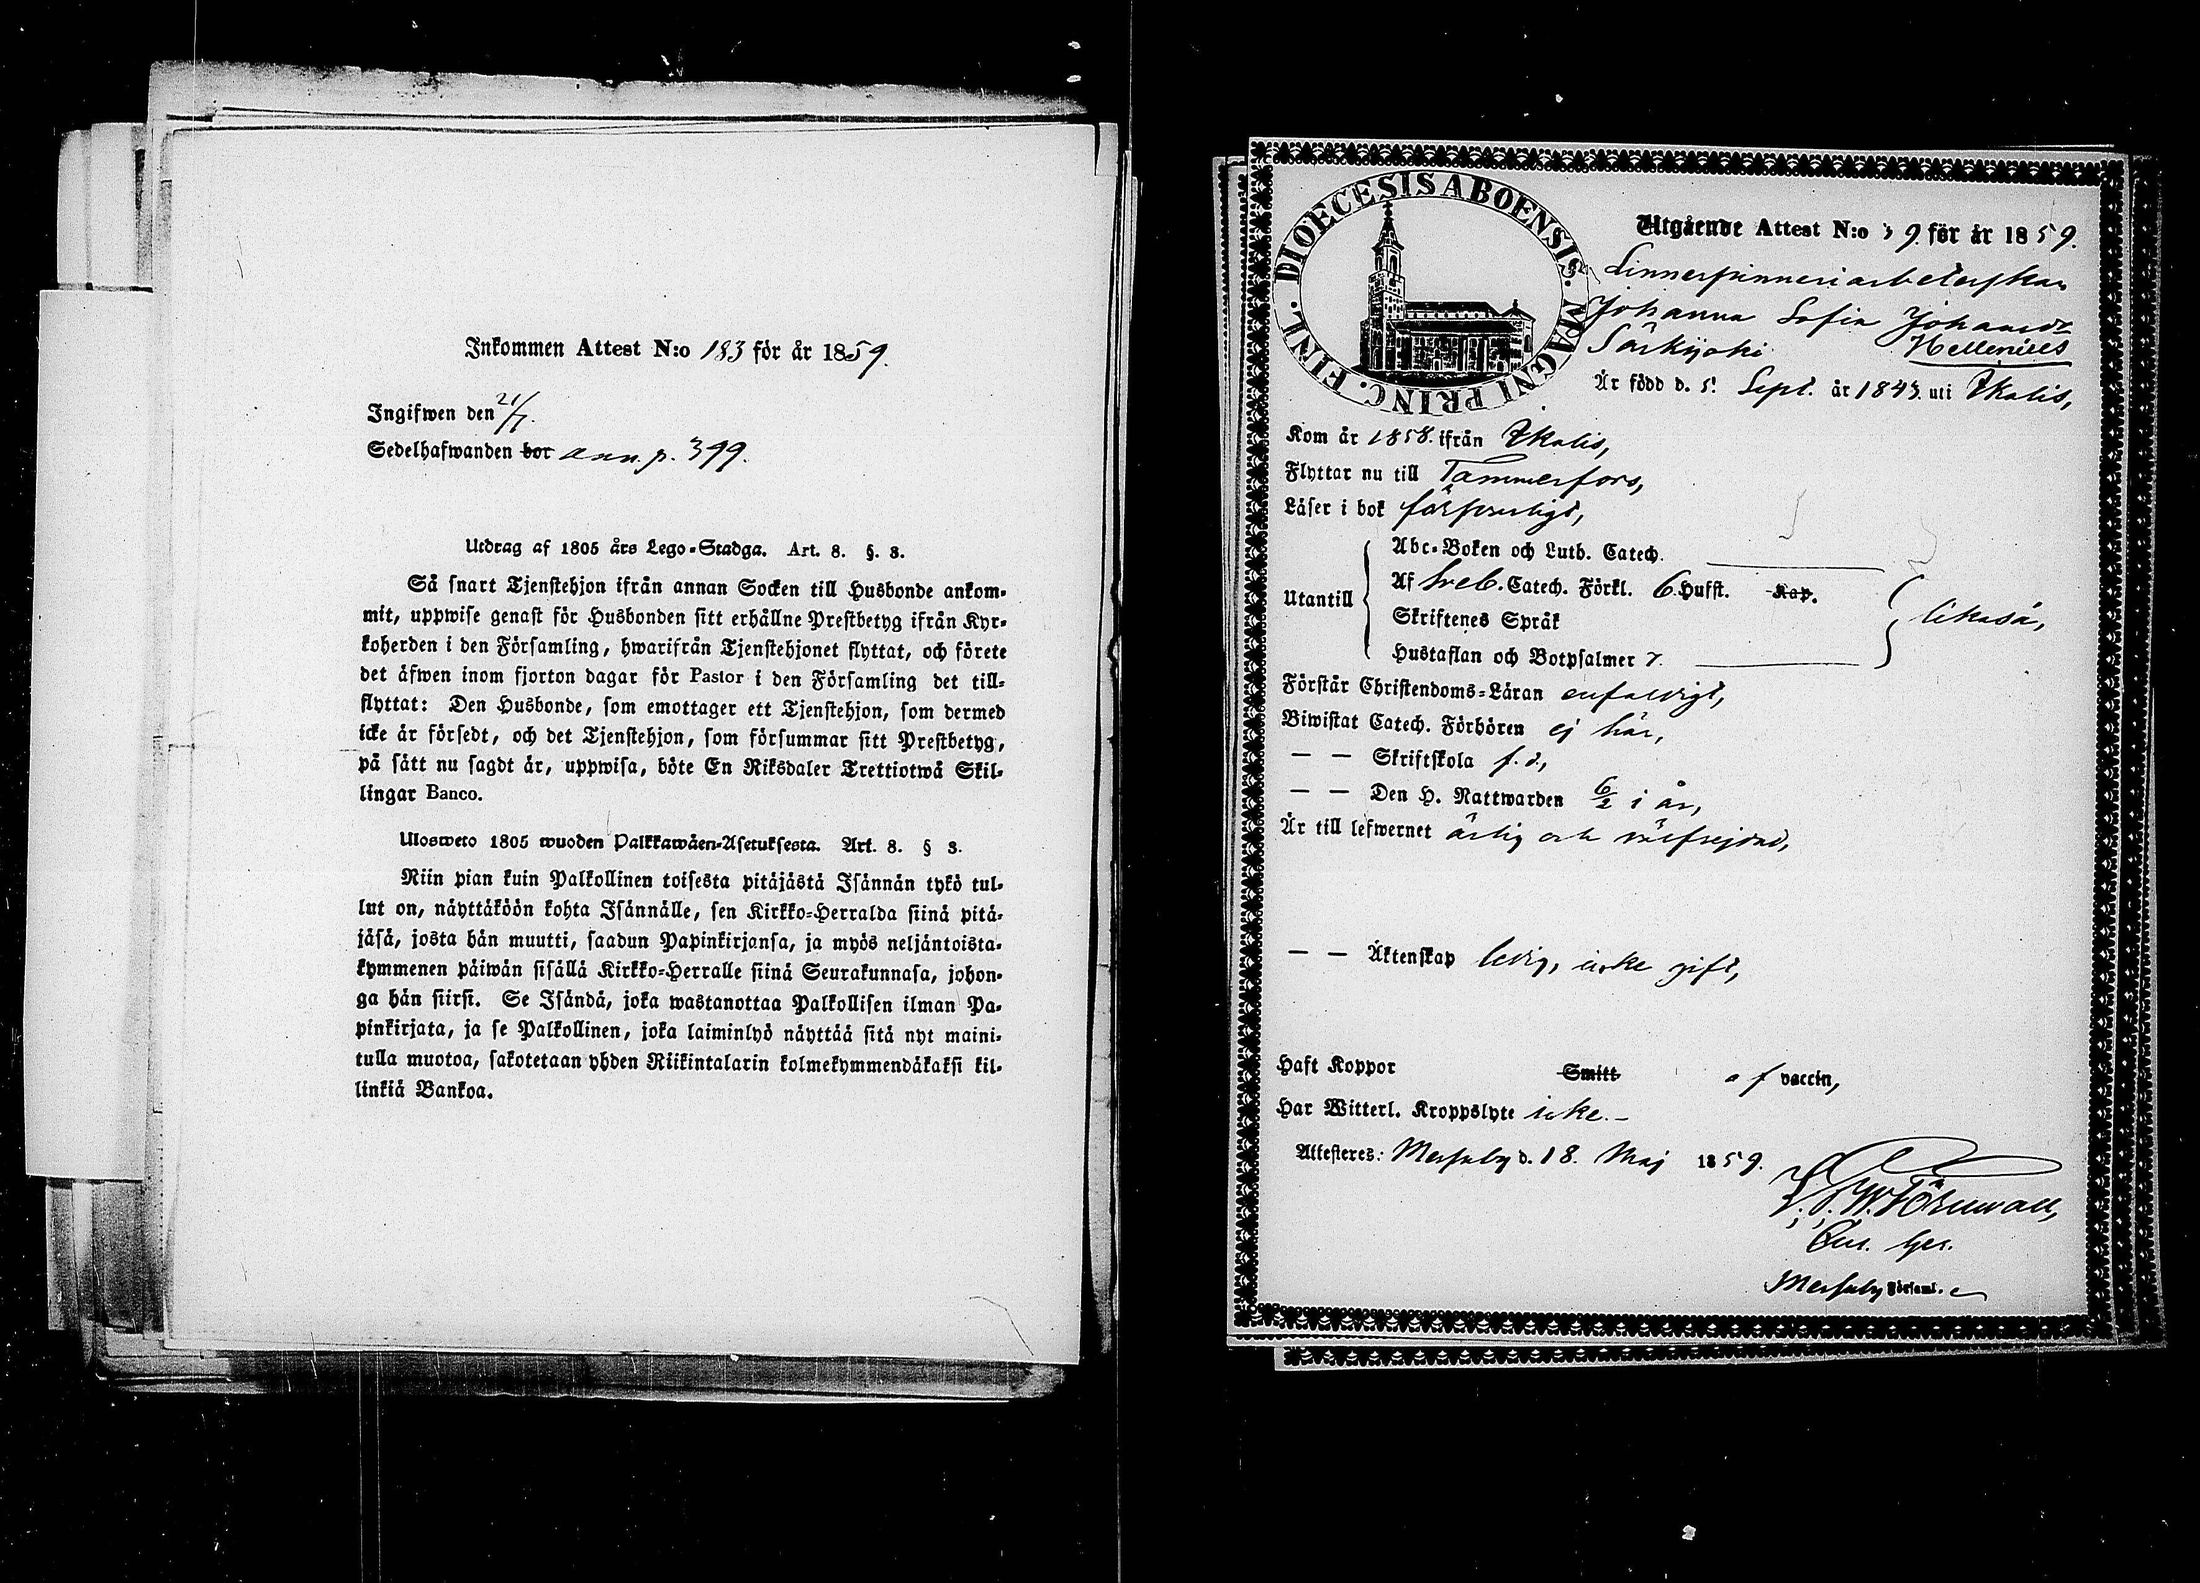 Inkommen Attest N:o 183 för år 1859.
Ingifwen den 21/7.
Sedelhafwanden bor ann. p. 399.
Utdrag af 1805 års Lego-Stadga. Art. 8. §. 8.
Så snart Tjenstehjon ifrån annan Socken till Husbonde ankom-
mit, uppwise genast för Husbonden sitt erhållne Prestbetyg ifrån Kyr-
koherden i den Församling, hwarifrån Tjenstehjonet flyttat, och förete
det äfwen inom fjorton dagar för Pastor i den Församling det till-
flyttat: Den Husbonde, som emottager ett Tjenstehjon, som dermed
icke är försedt, och det Tjenstehjon, som försummar sitt Prestbetyg,
på sätt nu sagdt är, uppwisa, böte En Riksdaler Trettiotwå Skil-
lingar Banco.
Ulosweto 1805 wuoden Palkkawäen-Asetuksesta. Art. 8. § 8.
Niin pian kuin Palkollinen toisesta pitäjästä Isännän tykö tul-
lut on, näyttäköön kohta Isännälle, sen Kirkko-Herralda siinä pitä-
jäsä, josta hän muutti, saadun Papinkirjansa, ja myös neljäntoista-
kymmenen päiwän sisällä Kirkko-Herralle siinä Seurakunnasa, johon-
ga hän siirsi. Se Isändä, joka wastanottaa Palkollisen ilman Pa-
pinkirjata, ja se Palkollinen, joka laiminlyö näyttää sitä nyt maini-
tulla muotoa, sakotetaan yhden Riikintalarin kolmekymmendäkaksi kil-
linkiä Bankoa.
DIOECESIS ABOENSIS. MAGNI PRINC. FINL.
Utgående Attest N:o 9. för år 1859.
Linnespinneriarbeterskan
Johanna Sofia Johansdr
Särkijoki Hellenius
Är född d. 5. Sept. år 1843. uti Ikalis,
Kom år 1858. ifrån Ikalis,
Flyttar nu till Tammerfors,
Läser i bok försvarligt,
Abc-Boken och Luth. Catech.
Utantill Af Sveb. Catech. Förkl. 6 Hufst. Kap. likaså,
Skriftenes Språk
Hustaflan och Botpsalmer 7.
Förstår Christendoms-Läran enfaldigt,
Biwistat Catech. Förhören ej här,
— — Skriftskola f. d.,
— — Den H. Nattwarden 6/2 i år,
Är till lefwernet ärlig och välfrejdad,
— — Äktenskap ledig, icke gift,
Haft Koppor Smitt af vaccin,
Har Witterl. Kroppslyte icke.—
Attesteres: Messuby d. 18. Maj 1859.
Törnwall,
Messuby Församl.